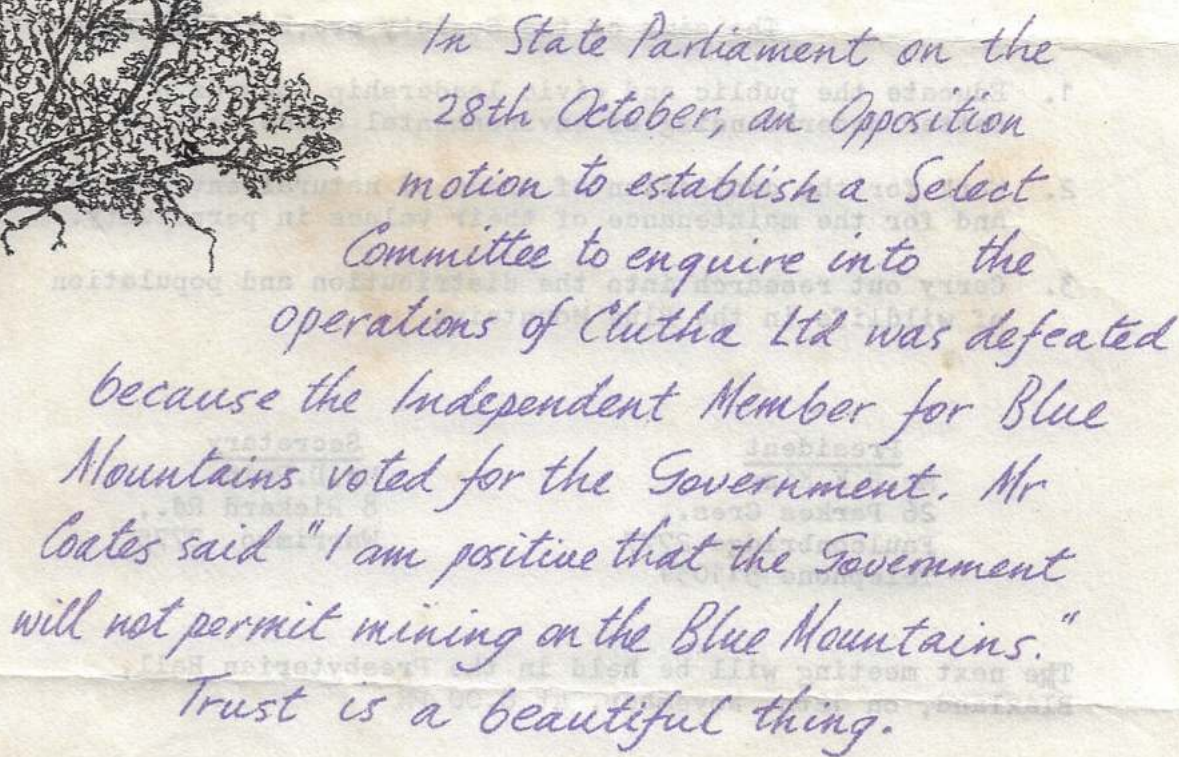 In State Parliament on the
28th October, an Opposition
motion to establish a Select
Committee to enquire into the
operations of Clutha Ltd was defeated
because the Independent Member for Blue
Mountains voted for the Government. Mr
Coates said "I am positive that the Government
will not permit mining on the Blue Mountains."
Trust is a beautiful thing.